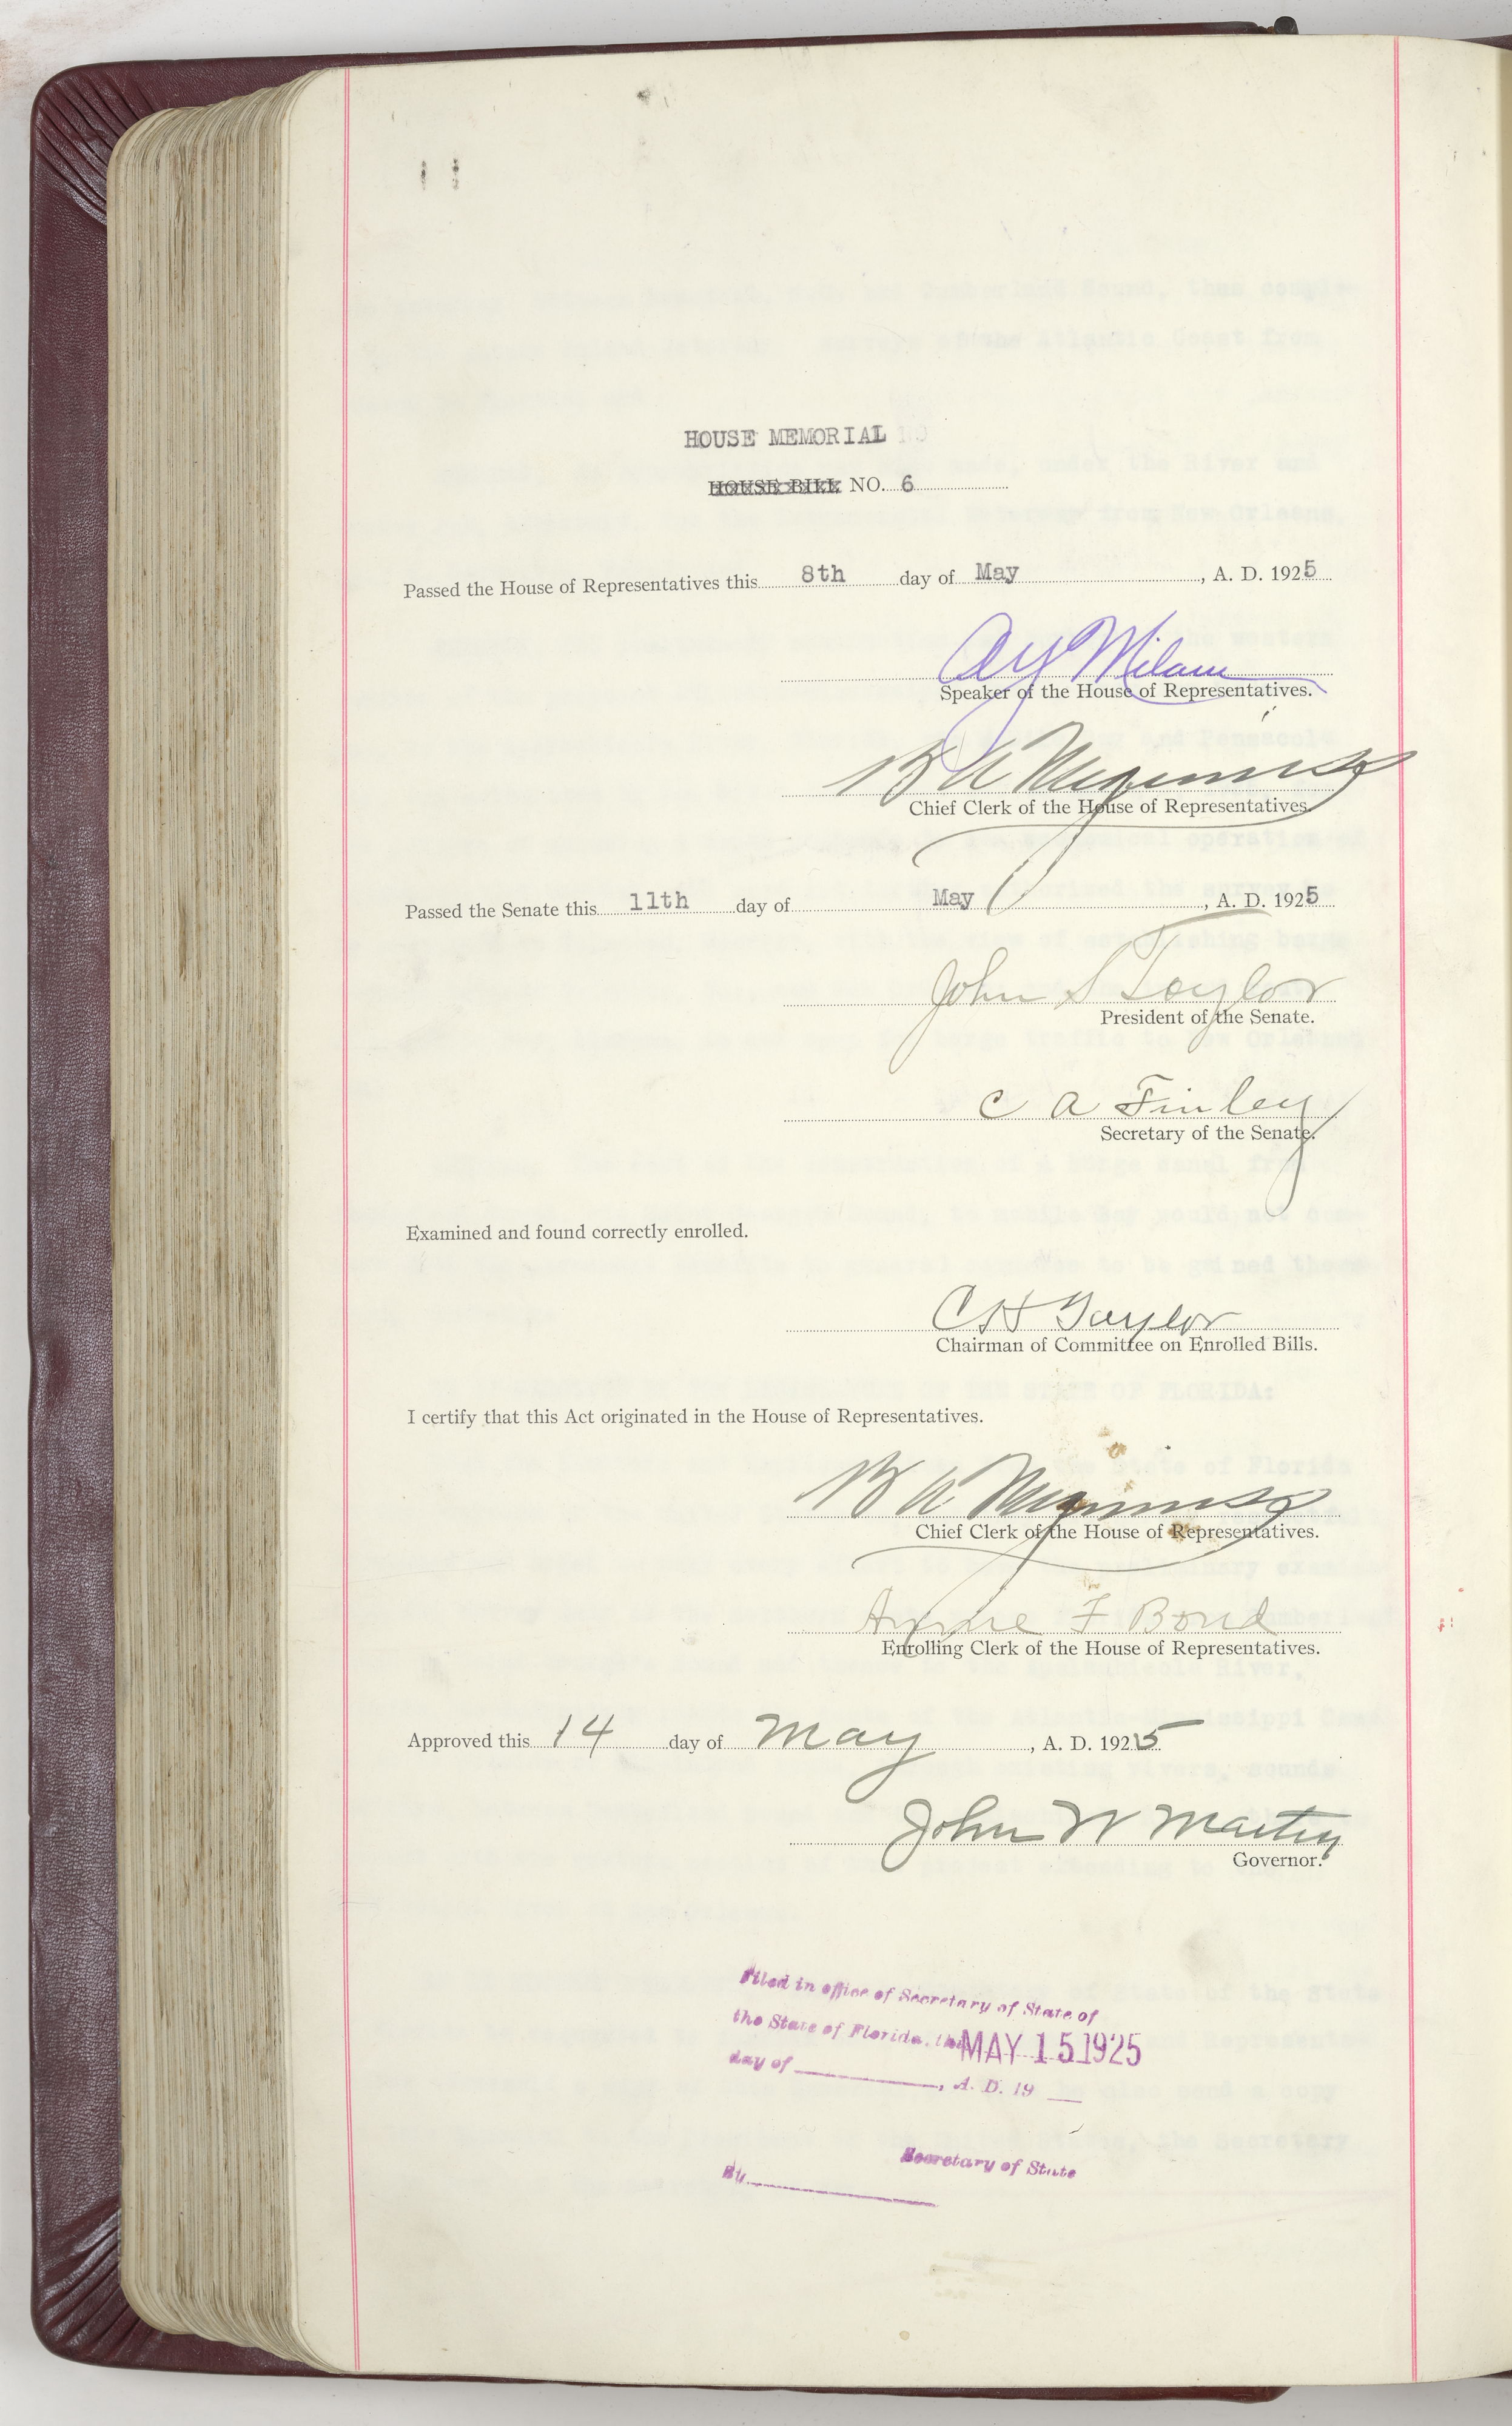 HOUSE MEMORIAL
HOUSE BILL NO. 6
Passed the House of Representatives this 8th day of May, A. D. 1925
A Y Milam
Speaker of the House of Representatives.
B A Meginniss
Chief Clerk of the House of Representatives.
Passed the Senate this 11th day of May, A. D. 1925
John S Taylor
President of the Senate.
C A Finley
Secretary of the Senate.
Examined and found correctly enrolled.
C H Taylor
Chairman of Committee on Enrolled Bills.
I certify that this Act originated in the House of Representatives.
B A Meginniss
Chief Clerk of the House of Representatives.
Annie F Bond
Enrolling Clerk of the House of Representatives.
Approved this 14 day of May, A. D. 1925
John W Martin
Governor.
Filed in office of Secretary of State of
the State of Florida, this MAY 15 1925
day of , A. D. 19
Secretary of State
By